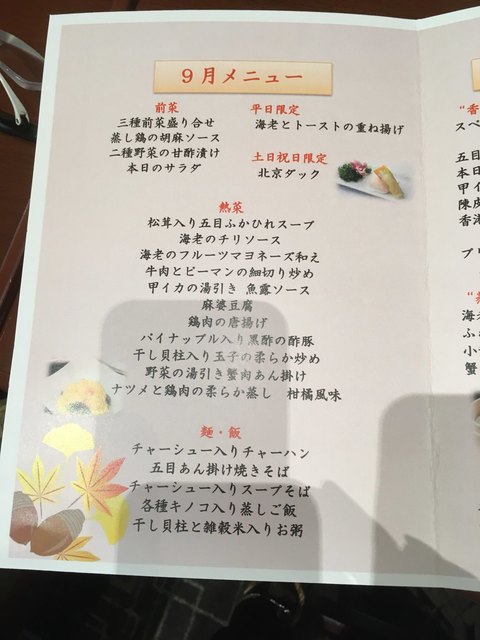 ９月メニュー
前菜
三種前菜盛り合せ
蒸し鶏の胡麻ソース
二種野菜の甘酢漬け
本日のサラダ
平日限定
海老とトーストの重ね揚げ
土日祝日限定
北京ダック
熱菜
松茸入り五目ふかひれスープ
海老のチリソース
海老のフルーツマヨネーズ和え
牛肉とピーマンの細切り炒め
甲イカの湯引き 魚露ソース
麻婆豆腐
鶏肉の唐揚げ
パイナップル入り黒酢の酢豚
干し貝柱入り玉子の柔らか炒め
野菜の湯引き蟹肉あん掛け
ナツメと鶏肉の柔らか蒸し 柑橘風味
麺・飯
チャーシュー入りチャーハン
五目あん掛け焼きそば
チャーシュー入りスープそば
各種キノコ入り蒸しご飯
干し貝柱と雑穀米入りお粥
“香
スペ
五目
本日
甲イ
陳皮
香港
ブリ
海老
ふか
小
蟹